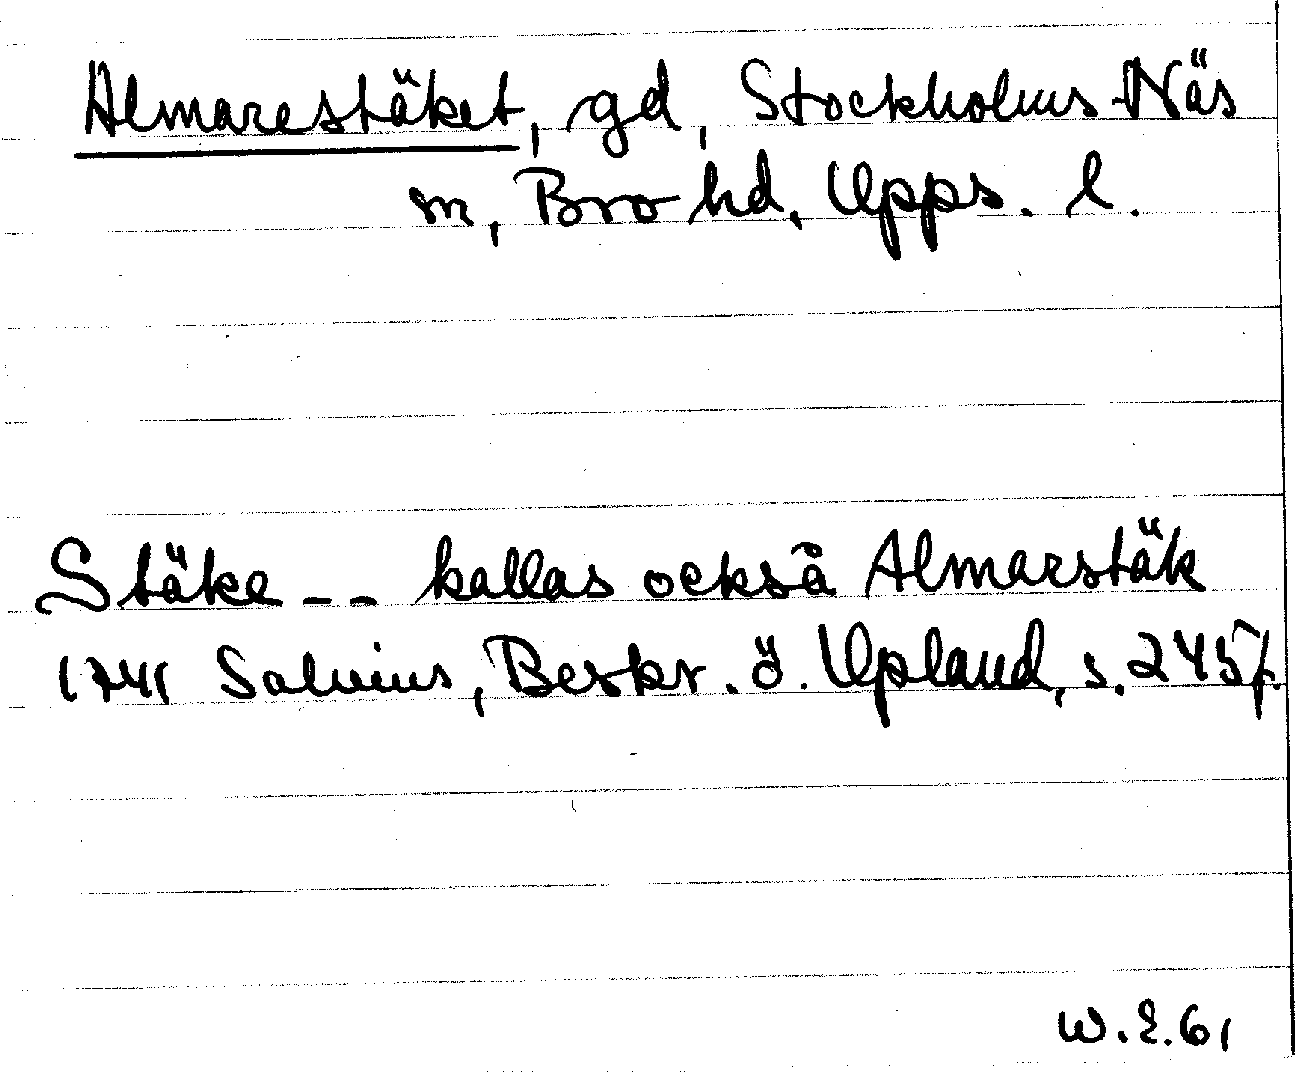 Almarestäket, gd, Stockholms-Näs
sn, Bro hd, Upps. l.
Stäke -- kallas också Almarstäk
1741 Salvius, Beskr. ö. Upland, s. 245 f.
W.E.61